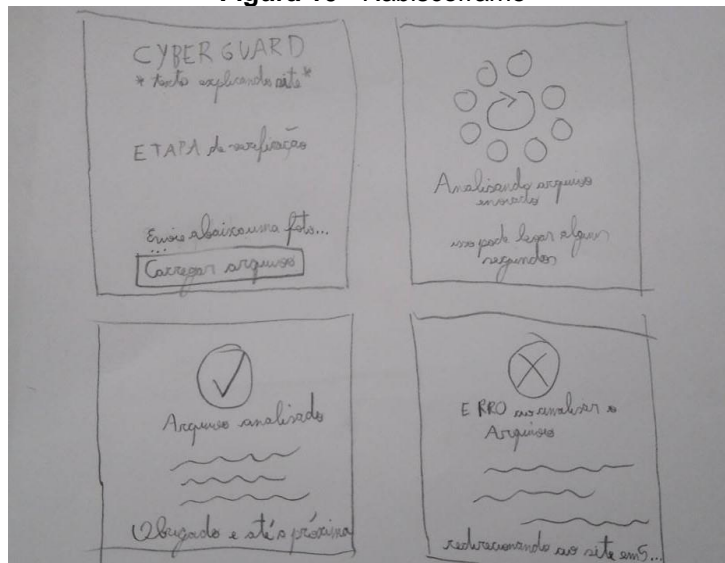 CYBER GUARD
* texto explicando site *
ETAPA de verificação
Envie abaixo uma foto...
Carregar arquivo
Analisando arquivo
enviado
isso pode levar alguns
segundos
Arquivo analisado
Obrigado e até a próxima
ERRO ao analisar o
Arquivo
redirecionando ao site em 5...